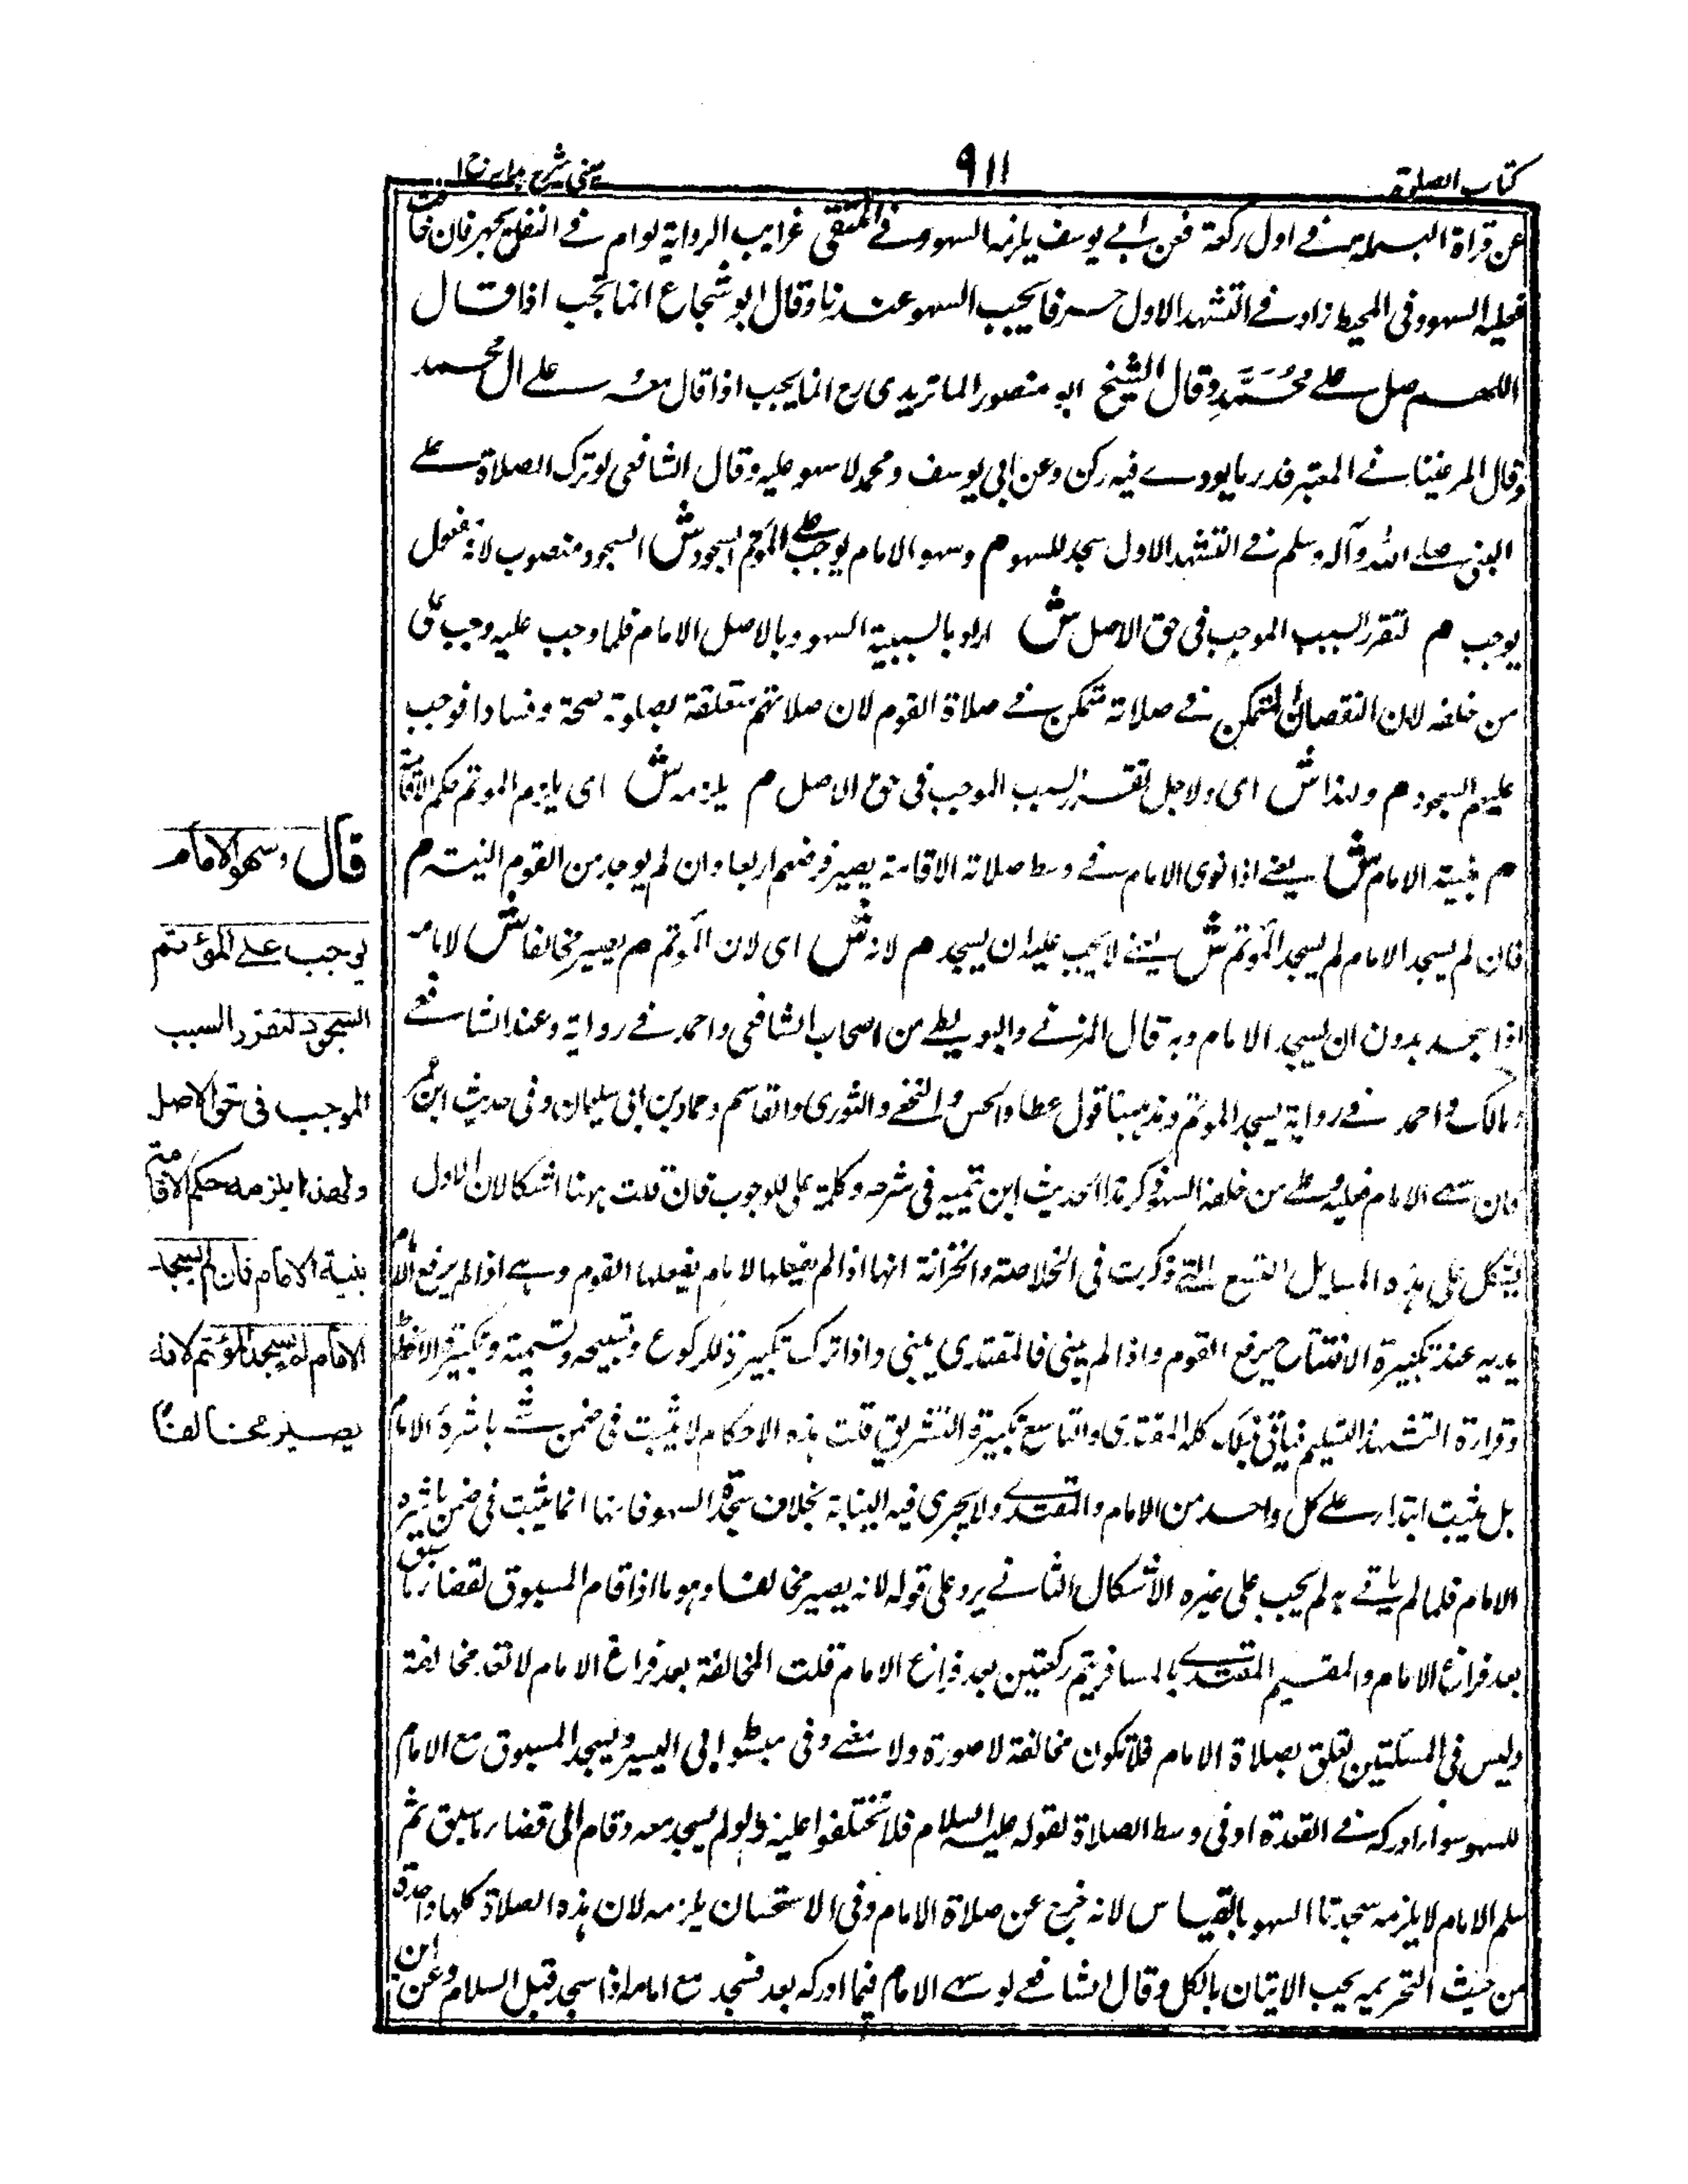 كتاب الصلوة
٩١١
عینی شرح ہدایہ ج ١
عن قراة البسملة فے اول ركعة فعن ابے يوسف يلزمه السهو وفے المنتقى غرايب الرواية لو ام فے النفل يجهر فان خافت
فعليه السهو وفى المحيط زاد فے التشهد الاول حرفا يجب السهو عندنا وقال ابو شجاع انما تجب اذا قال
اللهم صل علے محمد وقال الشيخ ابو منصور الماتريدى رح انما يجب اذا قال معه علے ال محمد
وقال المرغينانے المعتبر قدر ما يودے فيه ركن وعن ابى يوسف ومحمد لا سهو عليه وقال الشافعى لو ترك الصلاة علے
النبى صلے الله وآله وسلم فے التشهد الاول سجد للسهو م وسهو الامام يوجب علے المؤتم السجود ش السجود منصوب لانه مفعول
يوجب م لتقرر السبب الموجب فى حق الاصل ش اراد بالسببية السهو وبالاصل الامام فلما وجب عليه وجب على
من خلفه لان النقصان المتمكن فے صلاته تمكن فے صلاة القوم لان صلاتهم متعلقة بصلوته صحة وفسادا فوجب
عليهم السجود م ولهذا ش اى ولاجل تقرر السبب الموجب فى حق الاصل م يلزمه ش اى يلزم الموتم حكم الاقامة
م بنية الامام ش يعنے اذا نوى الامام فے وسط صلاته الاقامة يصير فرضهم اربعا وان لم يوجد من القوم النيته م
فان لم يسجد الامام لم يسجد المؤتم ش يعنے لا يجب عليه ان يسجد م لانه ش اى لان المؤتم م يصير مخالفا ش لامامه
اذا سجد بدون ان يسجد الامام وبه قال المزنے والبويطے من اصحاب الشافعى واحمد فے رواية وعند الشافعے
ومالك واحمد فے رواية يسجد الموتم ومذهبنا قول عطا والحسن والنخعے والثورى والقاسم وحماد بن ابى سليمان وفى حديث ابن عمر
وان سهے الامام فعليه وعلے من خلفه السهو ذكر هذا الحديث ابن تيميه فى شرحه وكلمة على للوجوب فان قلت ههنا اشكالان الاول
يشكل على هذه المسايل التسع التے ذكرت فى الخلاصة والخزانة انها اذا لم يفعلها الامام يفعلها القوم وهے اذا لم يرفع الامام
يديه عند تكبيرة الافتتاح يرفع القوم واذا لم يثنى فالمقتدى يثنى واذا ترك تكبير الركوع وتسبيحه وتسميعه وتكبيرة الانحطاط
وقراءة التشهد والتسليم فياتى بذلك كله المقتدى والتاسع تكبيرة التشريق قلت هذه الاحكام لا يثبت فى ضمن شے باشره الامام
بل يثبت ابتداء علے كل واحد من الامام والمقتدے ولا يجرى فيه النيابة بخلاف سجدة السهو فانها انما يثبت فى ضمن باشره
الامام فلما لم ياتے به لم يجب على غيره الاشكال الثانے يرد على قوله لانه يصير مخالفا وهو ما اذا قام المسبوق لقضاء ما سبق
بعد فراغ الامام والمقيم المقتدے بالمسافر يتم ركعتين بعد فراغ الامام قلت المخالفة بعد فراغ الامام لا تعد مخالفة
وليس فى المسئلتين تعلق بصلاة الامام فلا تكون مخالفة لا صورة ولا معنے وفى مبسوط ابى اليسر ويسجد المسبوق مع الامام
للسهو سواء ادركه فے القعدة او فى وسط الصلاة لقوله عليه السلام فلا تختلفوا عليه ولو لم يسجد معه وقام الى قضاء ما سبق ثم
سلم الامام لا يلزمه سجدتا السهو بالقياس لانه خرج عن صلاة الامام وفى الاستحسان يلزمه لان هذه الصلاة كلها واحدة
من حيث التحريمه يجب الاتيان بالكل وقال الشافعے لو سهے الامام فيما ادركه بعد فسجد مع امامه اذا سجد قبل السلام وعن ابن
قال وسهو الامام
يوجب علے المؤتم
السجود لتقرر السبب
الموجب فى حق الاصل
ولهذا يلزمه حكم الاقامة
بنية الامام فان لم يسجد
الامام لم يسجد المؤتم لانه
يصير مخالفا